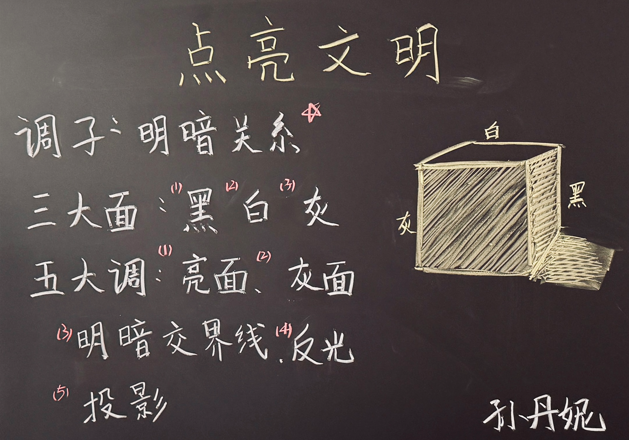 点亮文明
调子：明暗关系☆
三大面：(1)黑(2)白(3)灰
五大调：(1)亮面、(2)灰面
(3)明暗交界线、(4)反光
(5)投影
白
灰
黑
孙丹妮